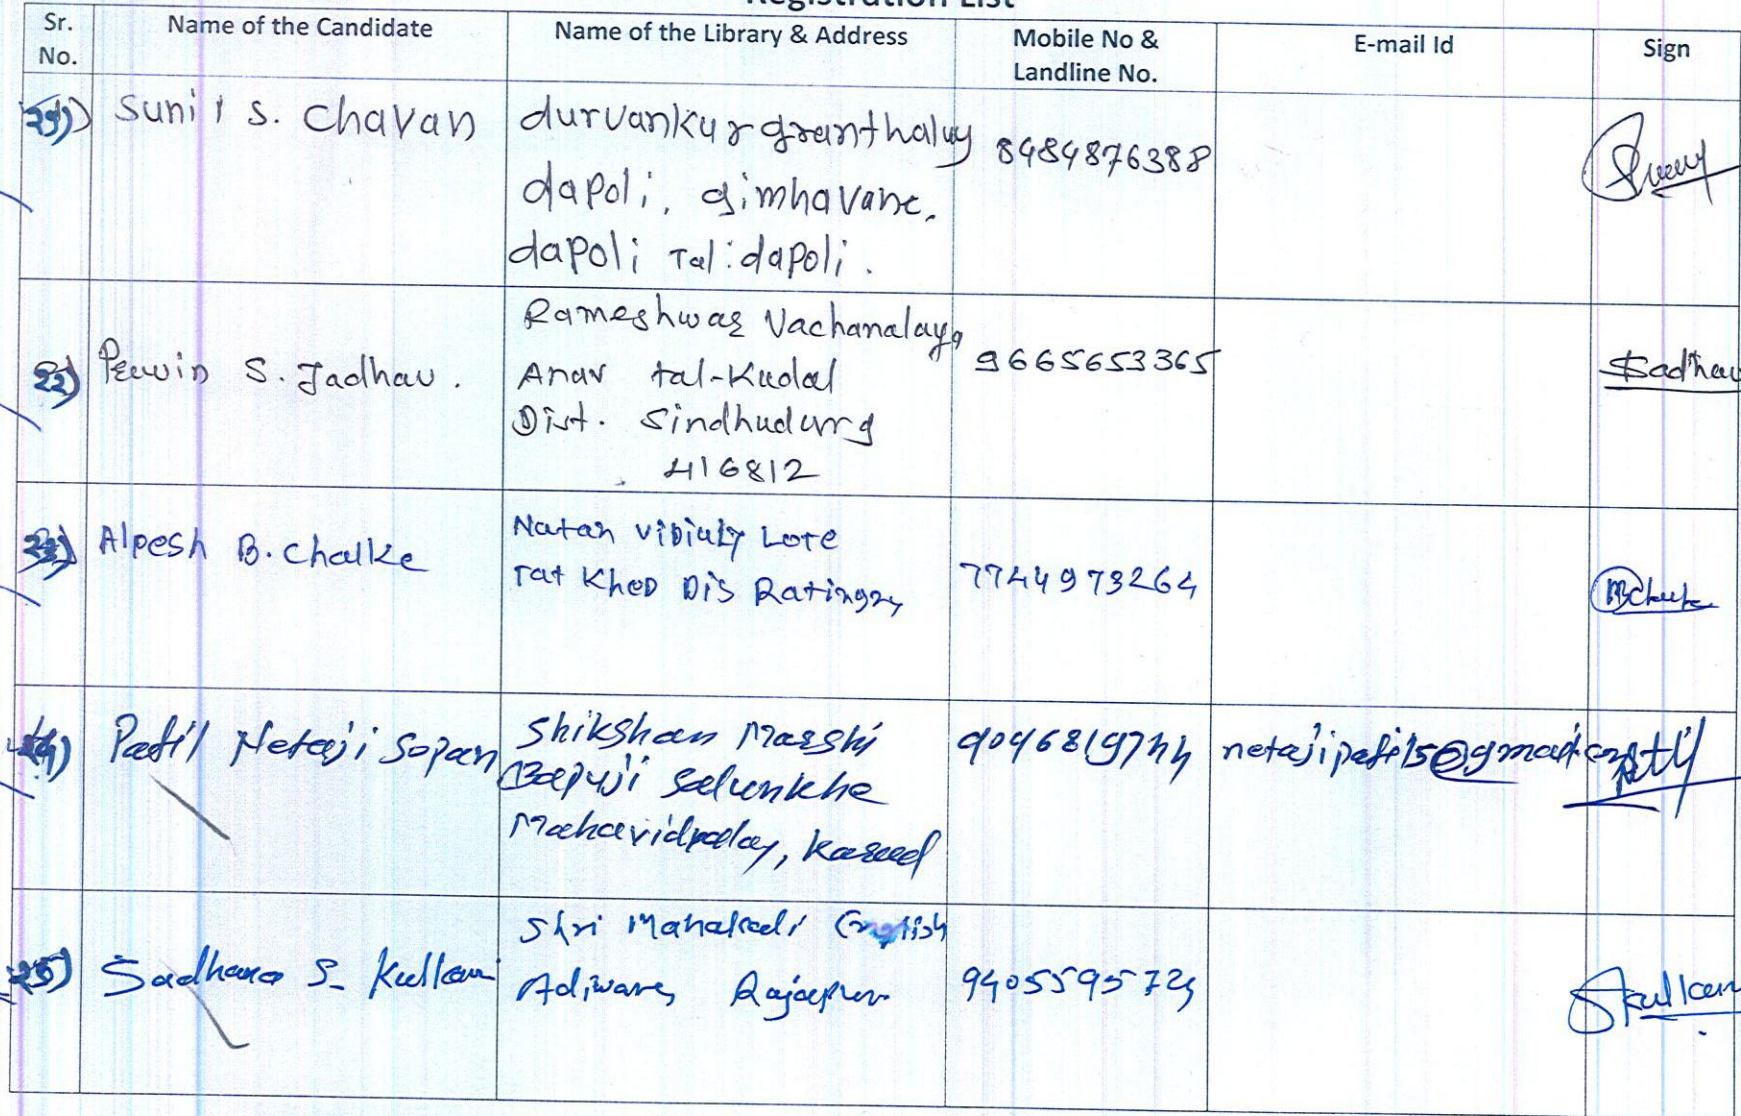 Registration List
Sr. No.
Name of the Candidate
Name of the Library & Address
Mobile No & Landline No.
E-mail Id
Sign
Sunil S. Chavan
durvankur granthalay
dapoli, gimhavane,
dapoli Tal: dapoli.
8484876388
22) S. Jadhav.
Rameshwar Vachanalaya
Anav tal-Kudal
Dist. Sindhudurg
416812
9665653365
Sadhav
23) Alpesh B. Chalke
Lote
Tat Khed Dis
7744973264
24) Patil Netaji Sopan
Shikshan Marshi
Bapuji Salunkhe
Mahavidyalay, Karad
9046819744
25) Sadhana S.
Shri Mahakali English
Adiware, Rajapur